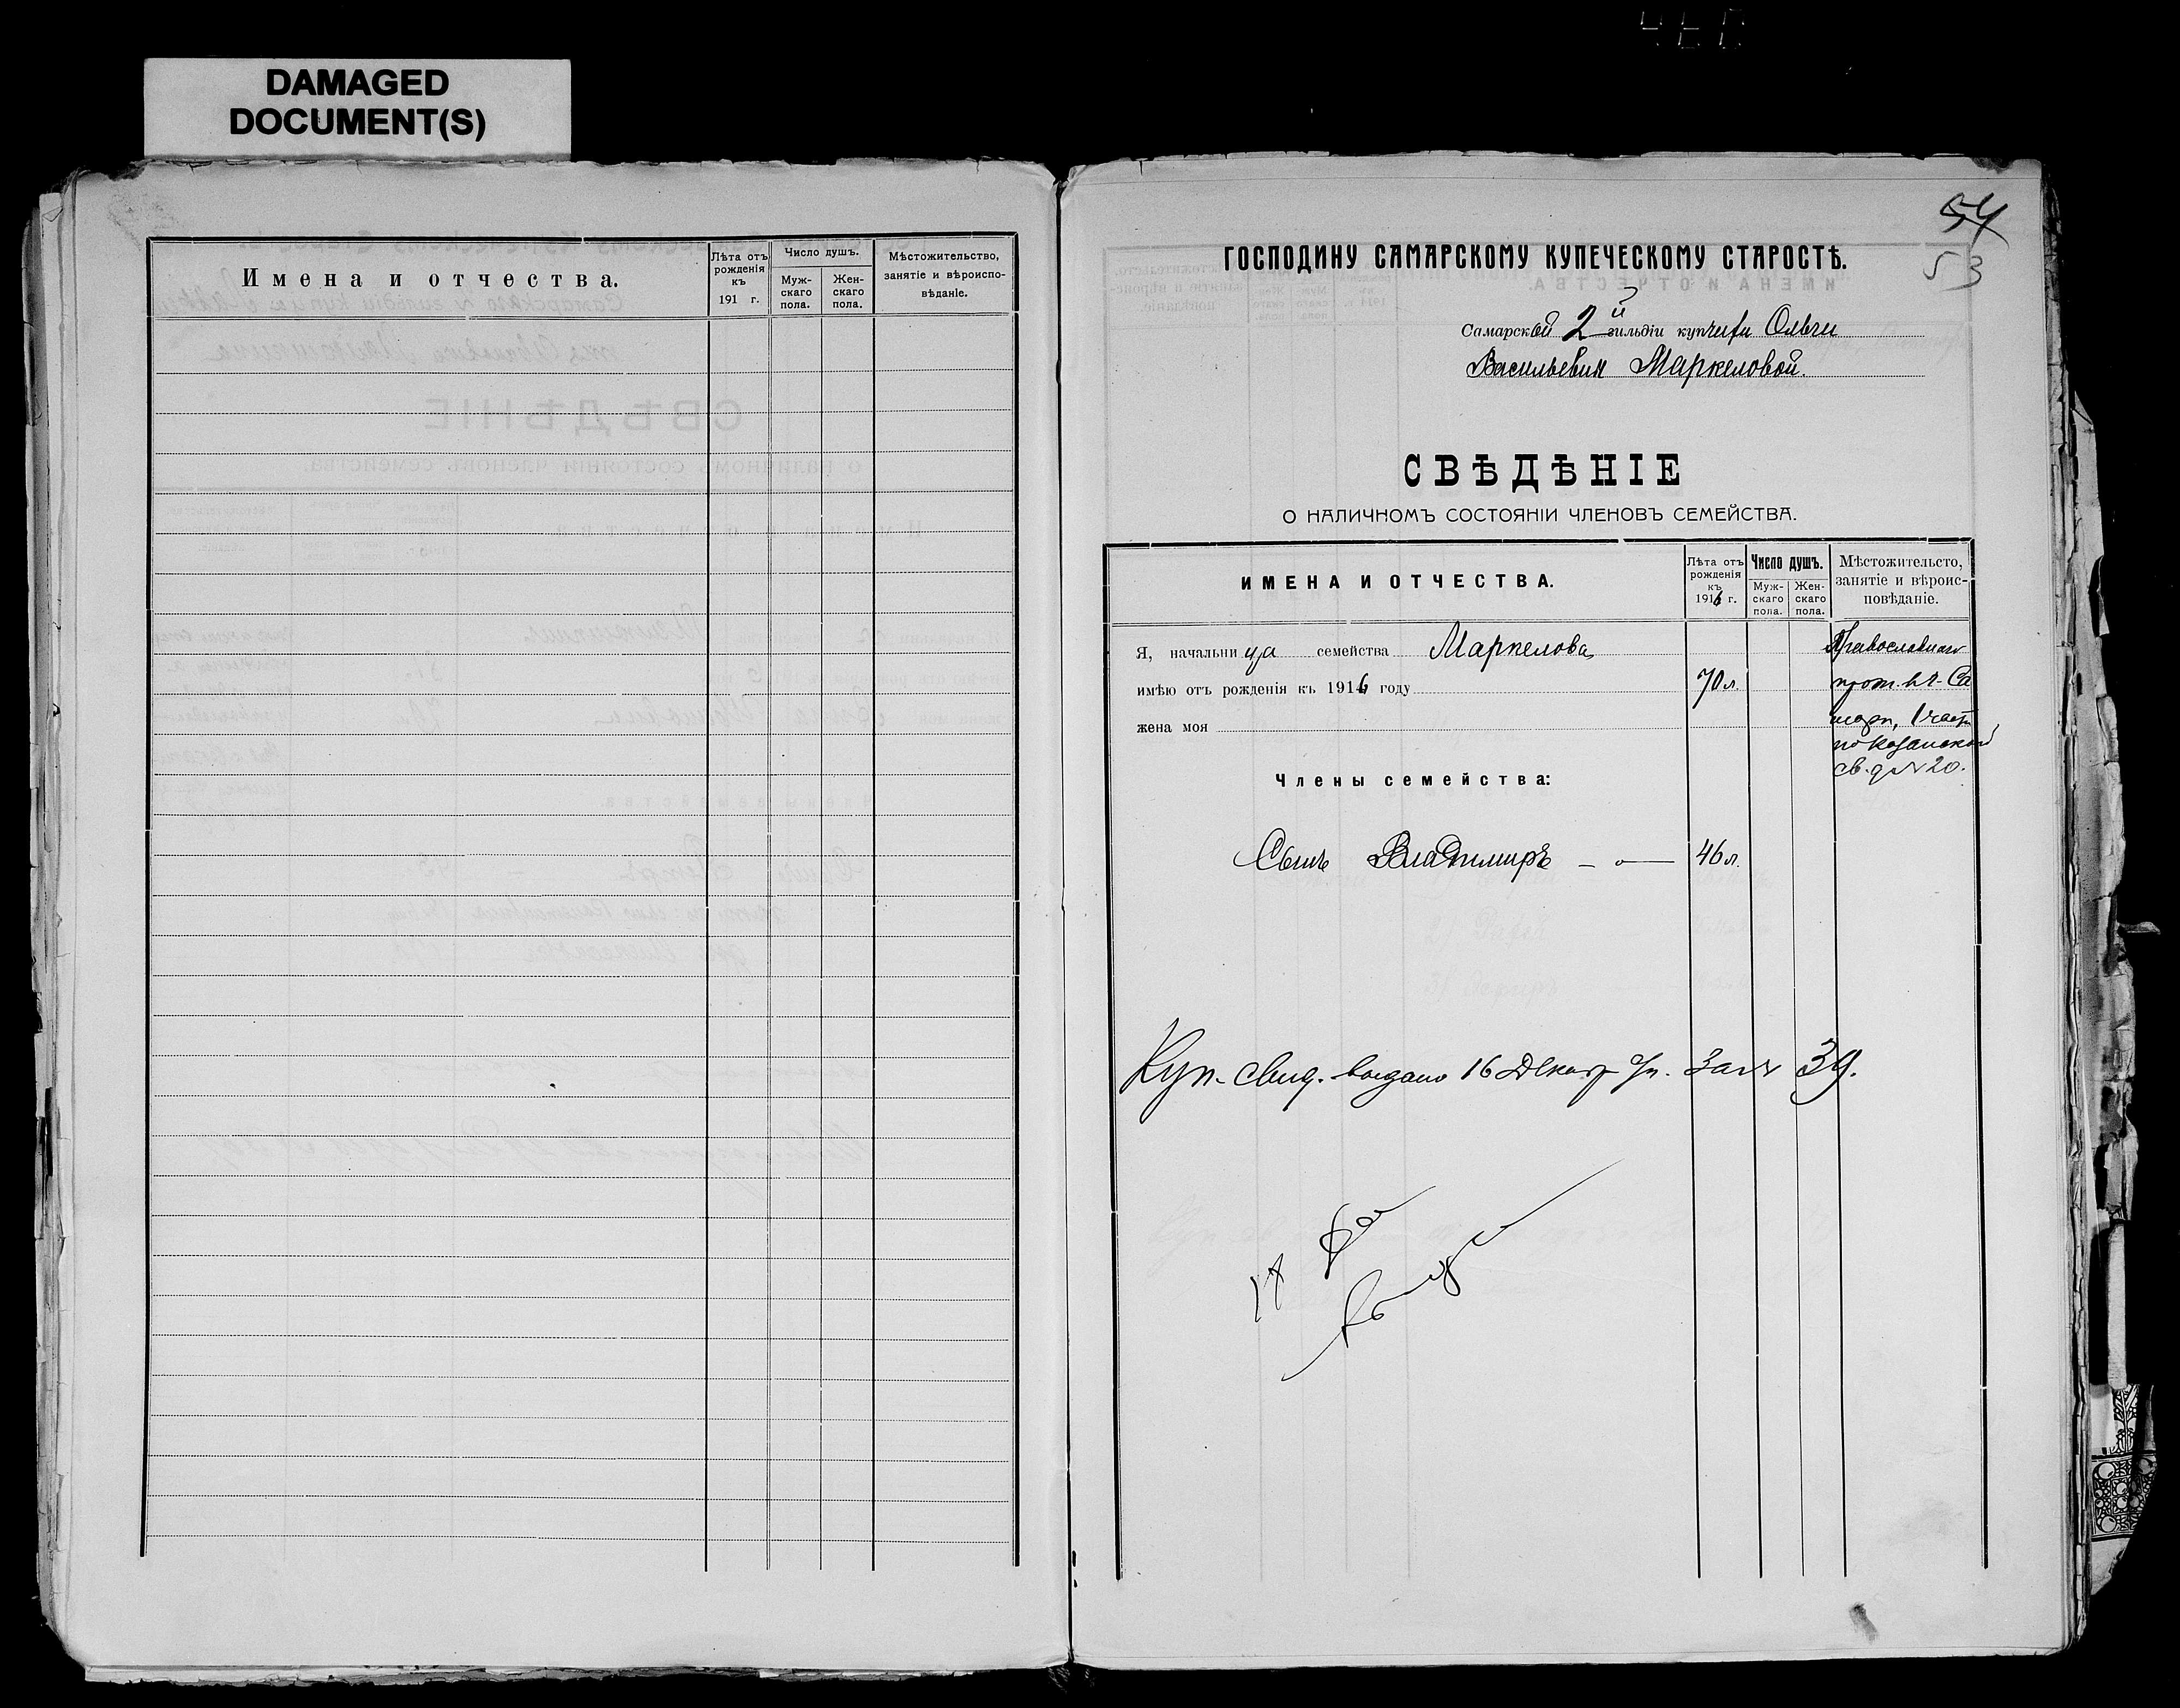 DAMAGED
DOCUMENT(S)
Имена и отчества.
Лѣта отъ рожденія къ 191 г.
Число душъ.
Муж-скаго пола.
Жен-скаго пола.
Мѣстожительство, занятіе и вѣроиспо-вѣданіе.
54
53
ГОСПОДИНУ САМАРСКОМУ КУПЕЧЕСКОМУ СТАРОСТѢ.
Самарской 2й гильдіи купчихи Ольги
Васильевны Маркеловой.
СВѢДѢНІЕ
О НАЛИЧНОМЪ СОСТОЯНІИ ЧЛЕНОВЪ СЕМЕЙСТВА.
ИМЕНА И ОТЧЕСТВА.
Лѣта отъ рожденія къ 1916 г.
Число душъ.
Муж-скаго пола.
Жен-скаго пола.
Мѣстожительсто, занятіе и вѣроис-повѣданіе.
Я, начальница семейства Маркелова
Православнаго
имѣю отъ рожденія къ 1916 году 70 л.
прож. въ г. Са
жена моя
мар, 1 части
по Казанской
св. д № 20.
Члены семейства:
Сынъ Владиміръ — 46 л.
Куп. свид. выдано 16 Декаб за № 39.